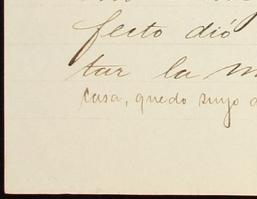 fecto dió
tar la m
casa, quedo suyo a